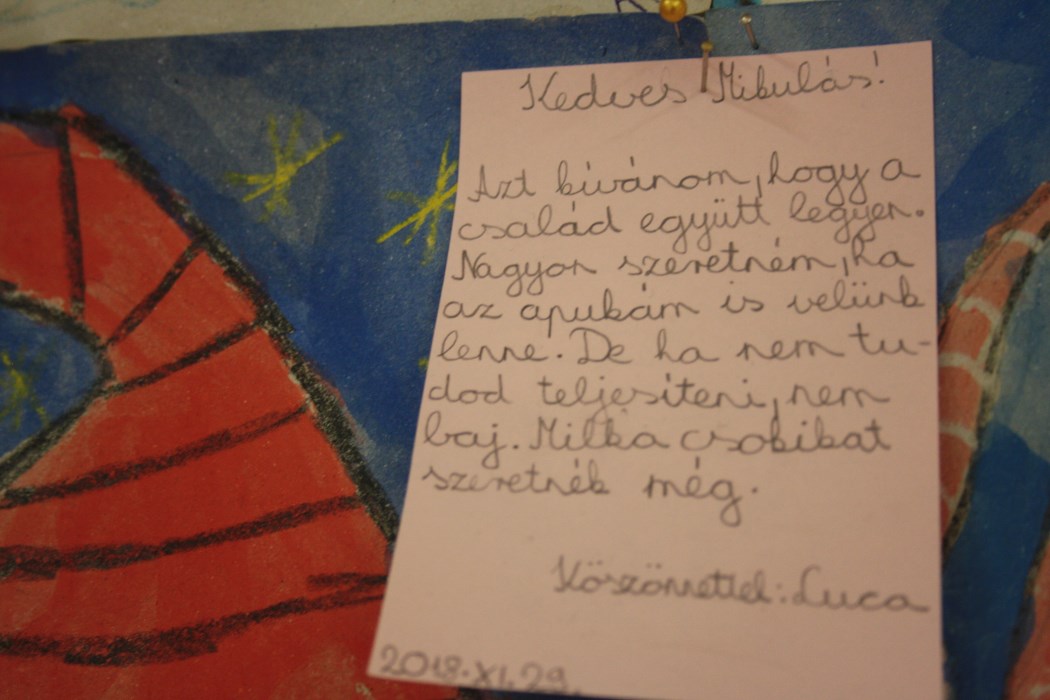 Kedves Mikulás!
Azt kívánom, hogy a
család együtt legyen.
Nagyon szeretném, ha
az apukám is velünk
lenne. De ha nem tu-
dod teljesíteni, nem
baj. Milka csokikat
szeretnék még.
Köszönettel: Luca
2018. XI. 29.